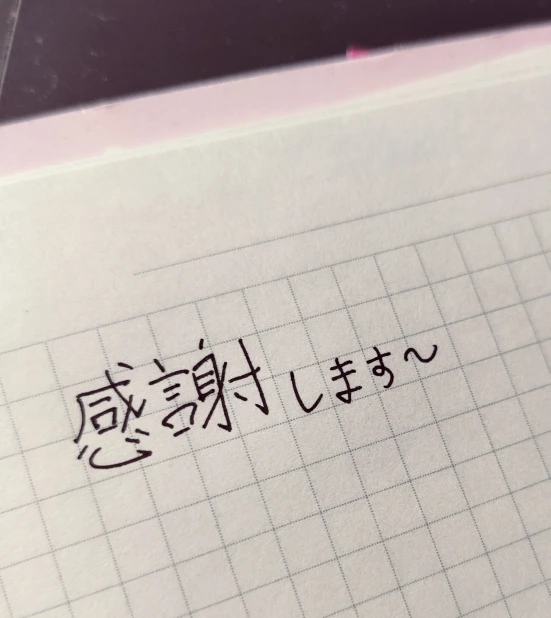 感謝します～